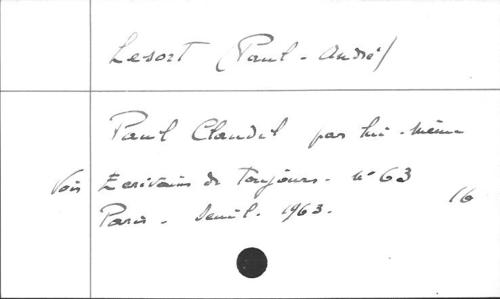 Lesort (Paul-André)
Paul Claudel par lui-même
Voir Ecrivains de Toujours. n° 63
Paris. Seuil. 1963.
16